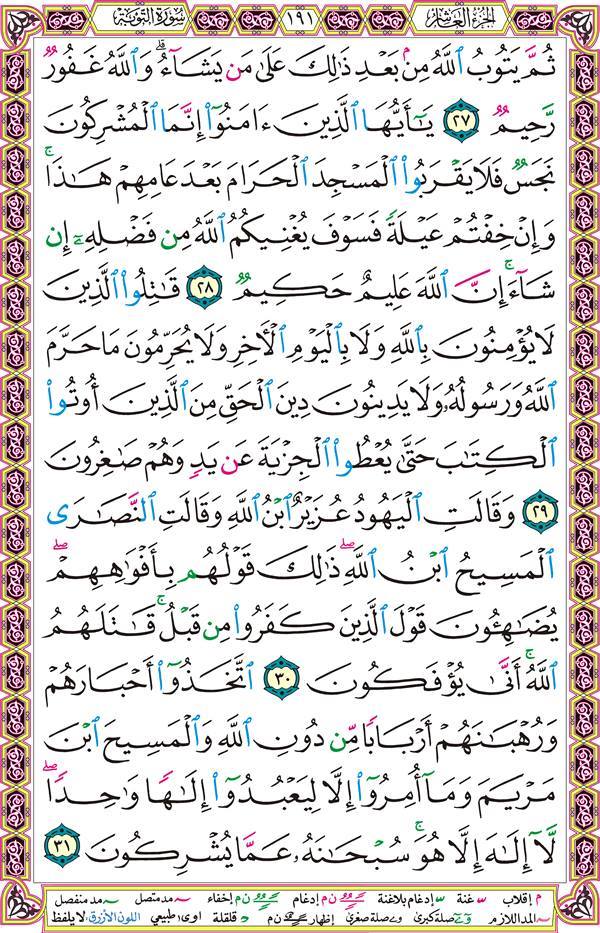 الجزء العاشر ١٩١ سورة التوبة
ثُمَّ يَتُوبُ ٱللَّهُ مِنۢ بَعْدِ ذَٰلِكَ عَلَىٰ مَن يَشَآءُ ۗ وَٱللَّهُ غَفُورٌ
رَّحِيمٌ ٢٧ يَـٰٓأَيُّهَا ٱلَّذِينَ ءَامَنُوٓا۟ إِنَّمَا ٱلْمُشْرِكُونَ
نَجَسٌ فَلَا يَقْرَبُوا۟ ٱلْمَسْجِدَ ٱلْحَرَامَ بَعْدَ عَامِهِمْ هَـٰذَا ۚ
وَإِنْ خِفْتُمْ عَيْلَةً فَسَوْفَ يُغْنِيكُمُ ٱللَّهُ مِن فَضْلِهِۦٓ إِن
شَآءَ ۚ إِنَّ ٱللَّهَ عَلِيمٌ حَكِيمٌ ٢٨ قَـٰتِلُوا۟ ٱلَّذِينَ
لَا يُؤْمِنُونَ بِٱللَّهِ وَلَا بِٱلْيَوْمِ ٱلْـَٔاخِرِ وَلَا يُحَرِّمُونَ مَا حَرَّمَ
ٱللَّهُ وَرَسُولُهُۥ وَلَا يَدِينُونَ دِينَ ٱلْحَقِّ مِنَ ٱلَّذِينَ أُوتُوا۟
ٱلْكِتَـٰبَ حَتَّىٰ يُعْطُوا۟ ٱلْجِزْيَةَ عَن يَدٍ وَهُمْ صَـٰغِرُونَ
٢٩ وَقَالَتِ ٱلْيَهُودُ عُزَيْرٌ ٱبْنُ ٱللَّهِ وَقَالَتِ ٱلنَّصَـٰرَى
ٱلْمَسِيحُ ٱبْنُ ٱللَّهِ ۖ ذَٰلِكَ قَوْلُهُم بِأَفْوَٰهِهِمْ ۖ
يُضَـٰهِـُٔونَ قَوْلَ ٱلَّذِينَ كَفَرُوا۟ مِن قَبْلُ ۚ قَـٰتَلَهُمُ
ٱللَّهُ ۚ أَنَّىٰ يُؤْفَكُونَ ٣٠ ٱتَّخَذُوٓا۟ أَحْبَارَهُمْ
وَرُهْبَـٰنَهُمْ أَرْبَابًا مِّن دُونِ ٱللَّهِ وَٱلْمَسِيحَ ٱبْنَ
مَرْيَمَ وَمَآ أُمِرُوٓا۟ إِلَّا لِيَعْبُدُوٓا۟ إِلَـٰهًا وَٰحِدًا ۖ
لَّآ إِلَـٰهَ إِلَّا هُوَ ۚ سُبْحَـٰنَهُۥ عَمَّا يُشْرِكُونَ ٣١
م إقلاب غنة إدغام بلاغنة ن م إدغام ن م إخفاء مد متصل مد منفصل
المد اللازم صلة كبرى صلة صغرى إظهار ن م قلقلة اوى طبيعي اللون الأزرق: لا يلفظ